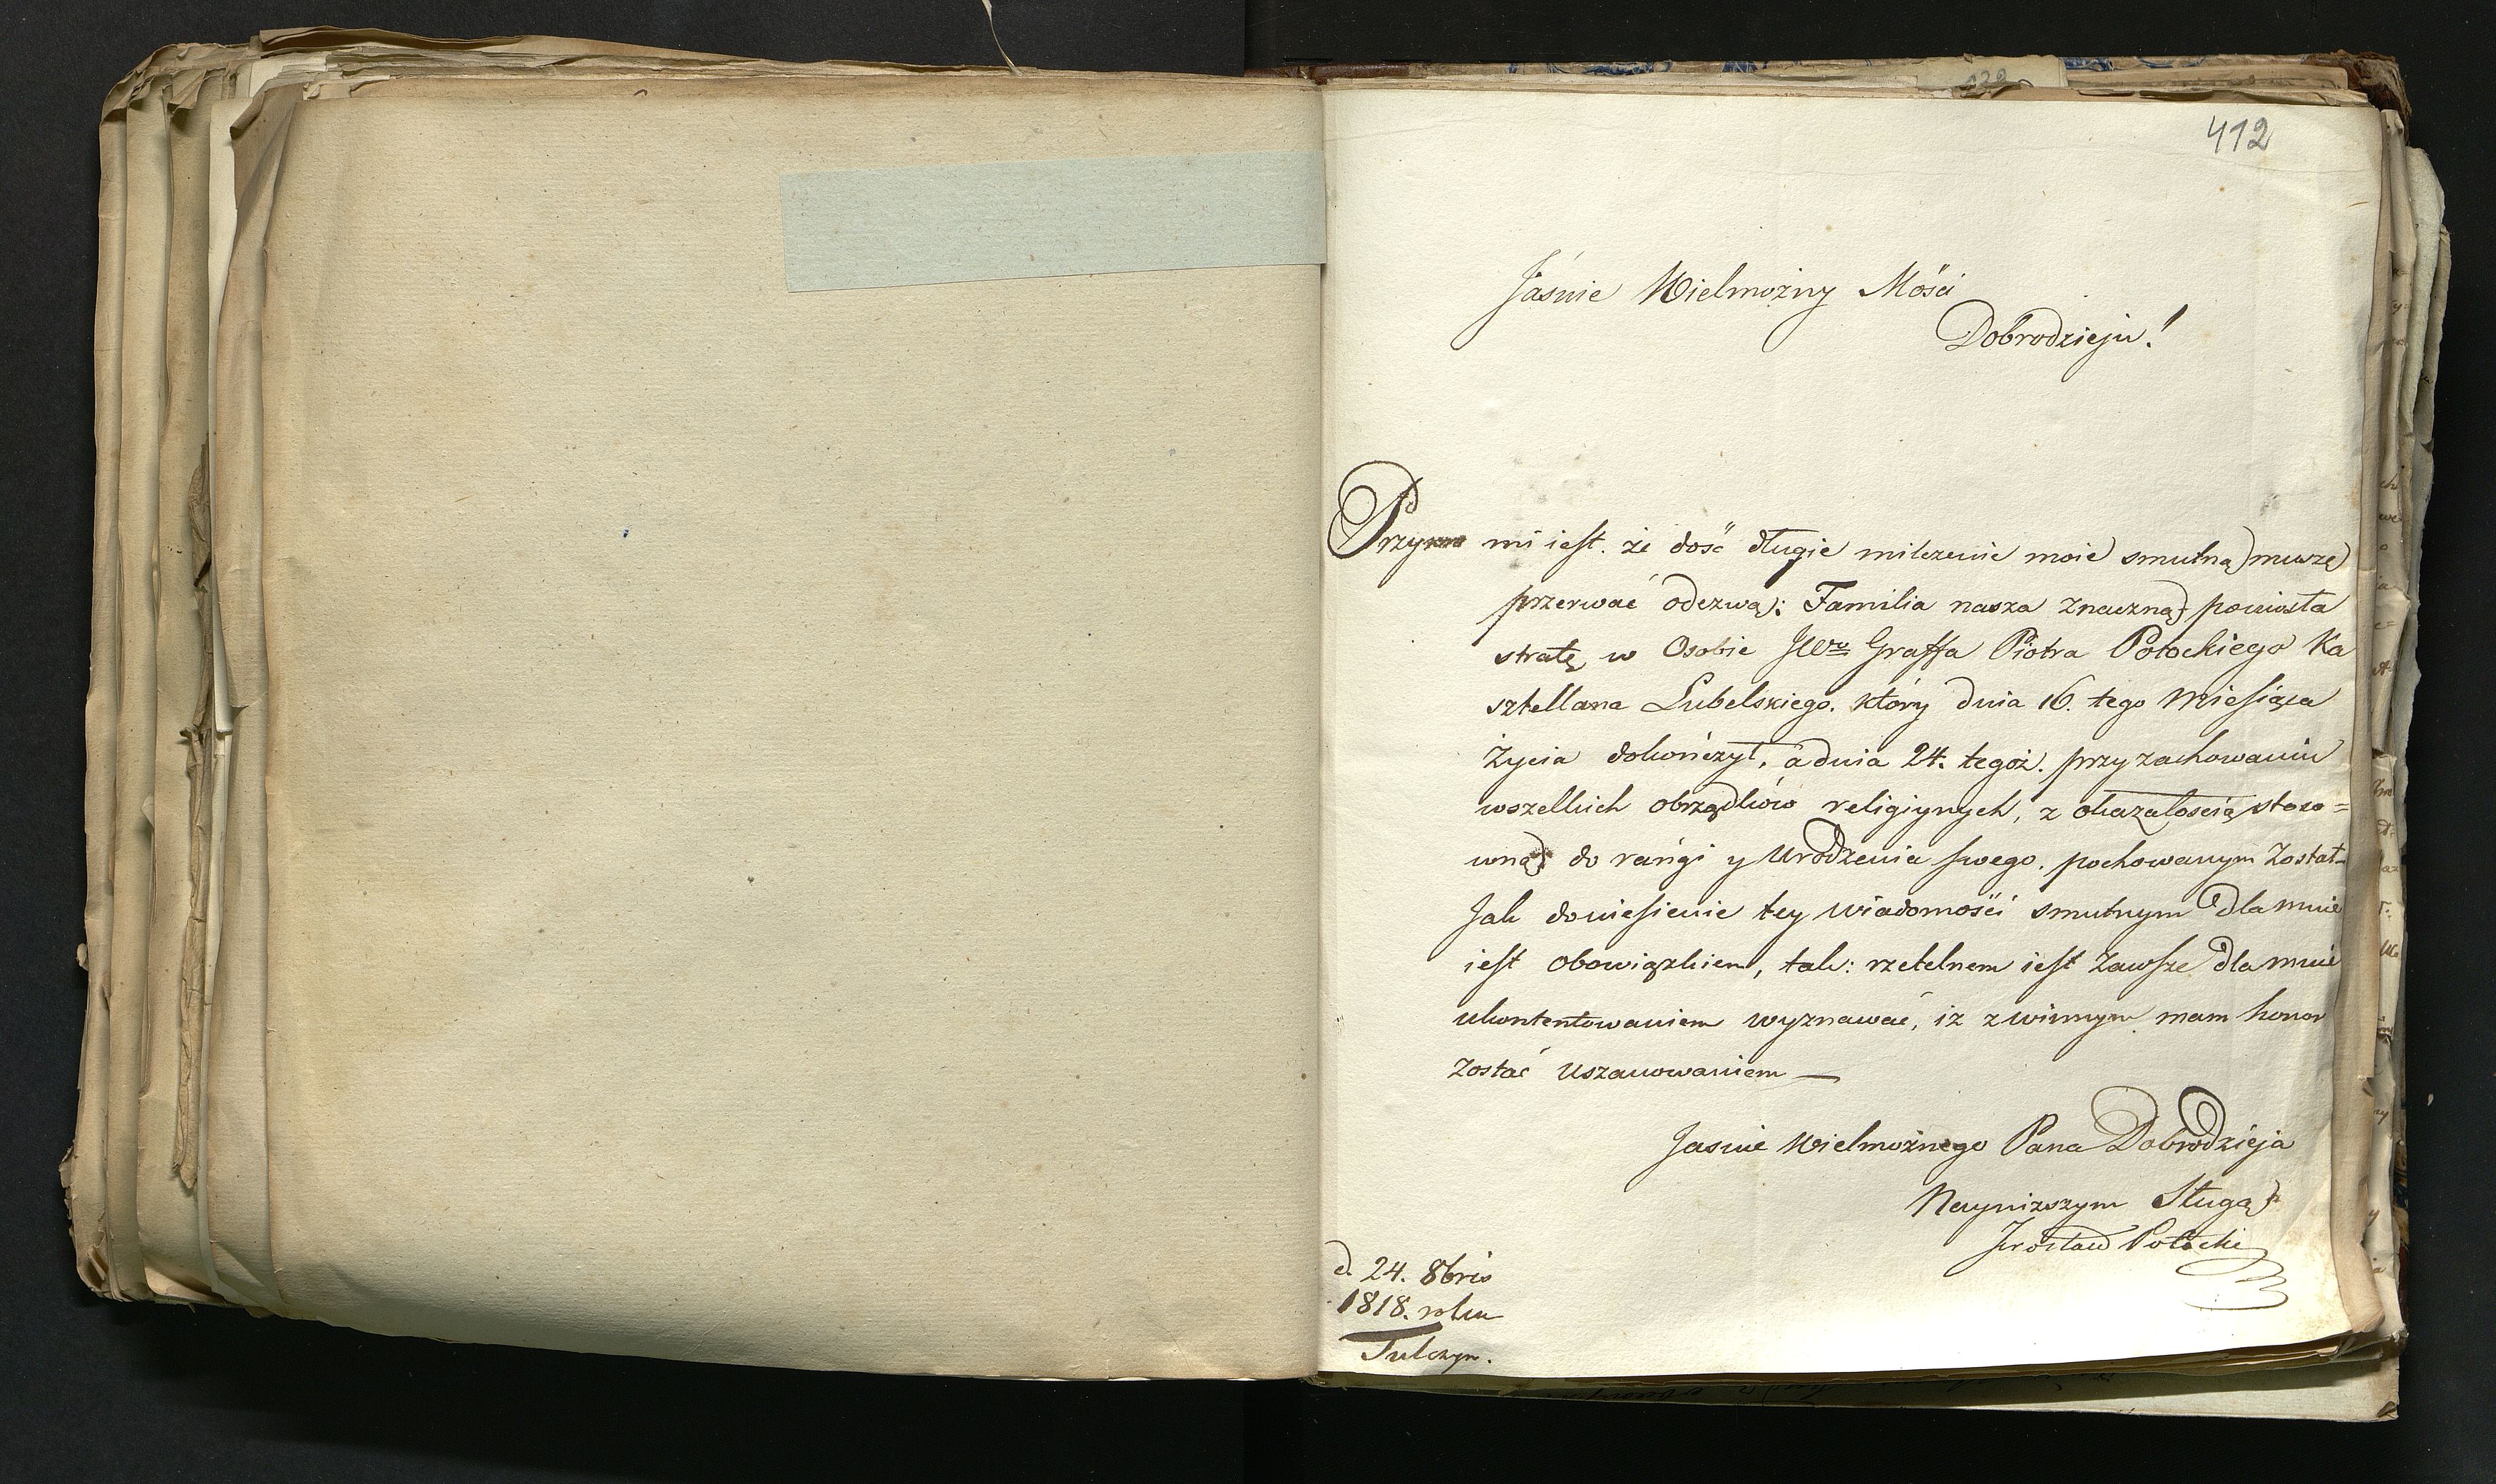 412
Jaśnie Wielmożny Mości
Dobrodzieju!
Przykro mi iest. że dość długie milczenie moie smutną muszę
przerwać odezwą: Familia nasza znaczną poniosła
stratę w Osobie JW Graffa Piotra Potockiego Ka
sztellana Lubelskiego. który dnia 16. tego Miesiąca
Życia dokończył, a dnia 24. tegoż. przy zachowaniu
wszelkich obrządków religiynych, z okazałością stoso=
wną do rangi y Urodzenia swego. pochowanym Został_
Jak doniesienie tey Wiadomości smutnym dla mnie
iest obowiązkiem, tak: rzetelnem iest Zawsze dla mnie
ukontentowaniem wyznawać, iz z winnym mam honor
Zostać Uszanowaniem —
Jasnie Wielmożnego Pana Dobrodzieja
Naynizszym Sługą
Jarosław Potocki
d. 24. 8bris
1818. roku
Tulczyn.